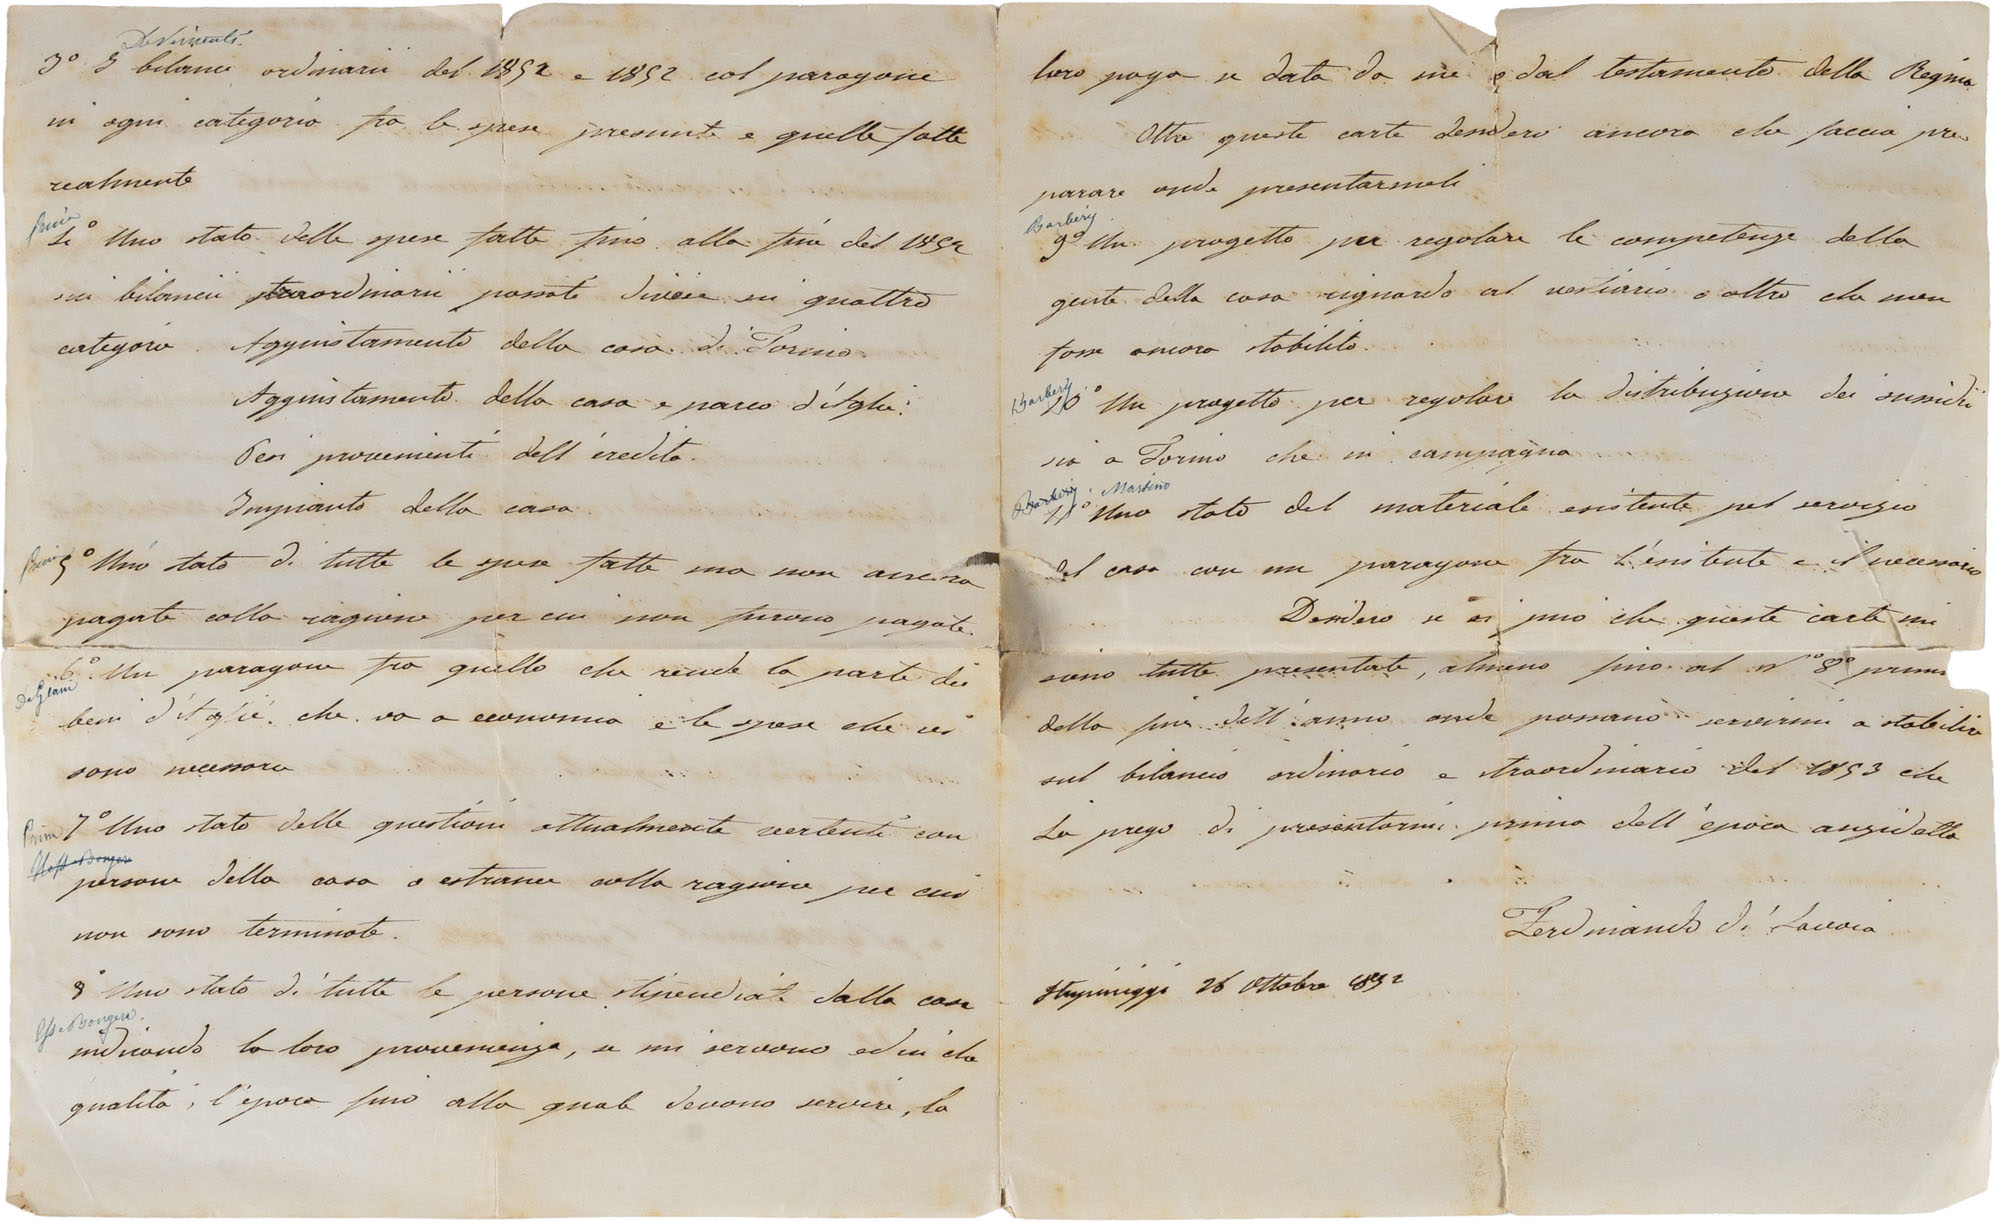 3º I bilanci ordinarii del 1852 e 1852 col paragone
in ogni categoria fra le spese presunte e quelle fatte
realmente
Prim
4º Uno stato delle spese fatte fino alla fine del 1852
sui bilancii straordinarii passati divise in quattro
categorie. Aggiustamento della casa di Torino.
Aggiustamento della casa e parco d'Agliè.
Pesi provenienti dell'eredità.
Impianto della casa.
Prim
5º Uno stato di tutte le spese fatte ma non ancora
pagate colla ragione per cui non furono pagate.
6º Un paragone fra quello che rende la parte dei
beni d'Agliè che va a economia e le spese che vi
sono necessarie
Prim
7º Uno stato delle questioni attualmente vertenti con
persone della casa o estranee colla ragione per cui
non sono terminate.
8º Uno stato di tutte le persone stipendiate dalla casa
Bongera.
indicando la loro provenienza, se mi servono ed in che
qualità, l'epoca fino alla quale devono servire, la
loro paga se data da me o dal testamento della Regina
Oltre queste carte desidero ancora che faccia pre
parare onde presentarmeli
Barbery
9º Un progetto per regolare le competenze della
gente della casa riguardo al vestiario o altro che non
fosse ancora stabilito.
Barbery
10º Un progetto per regolare la distribuzione dei sussidii
sia a Torino che in campagna
Barbery Massino
11º Uno stato del materiale esistente pel servizio
del casa con un paragone fra l'esistente e il necessario
Desidero se si può che queste carte mi
siano tutte presentate, almeno fino al nº 8º prima
della fine dell'anno onde possano servirmi a stabilire
sul bilancio ordinario e straordinario del 1853 che
La prego di presentarmi prima dell'epoca anzidetta
Ferdinando di Savoia
Stupiniggi 26 Ottobre 1852